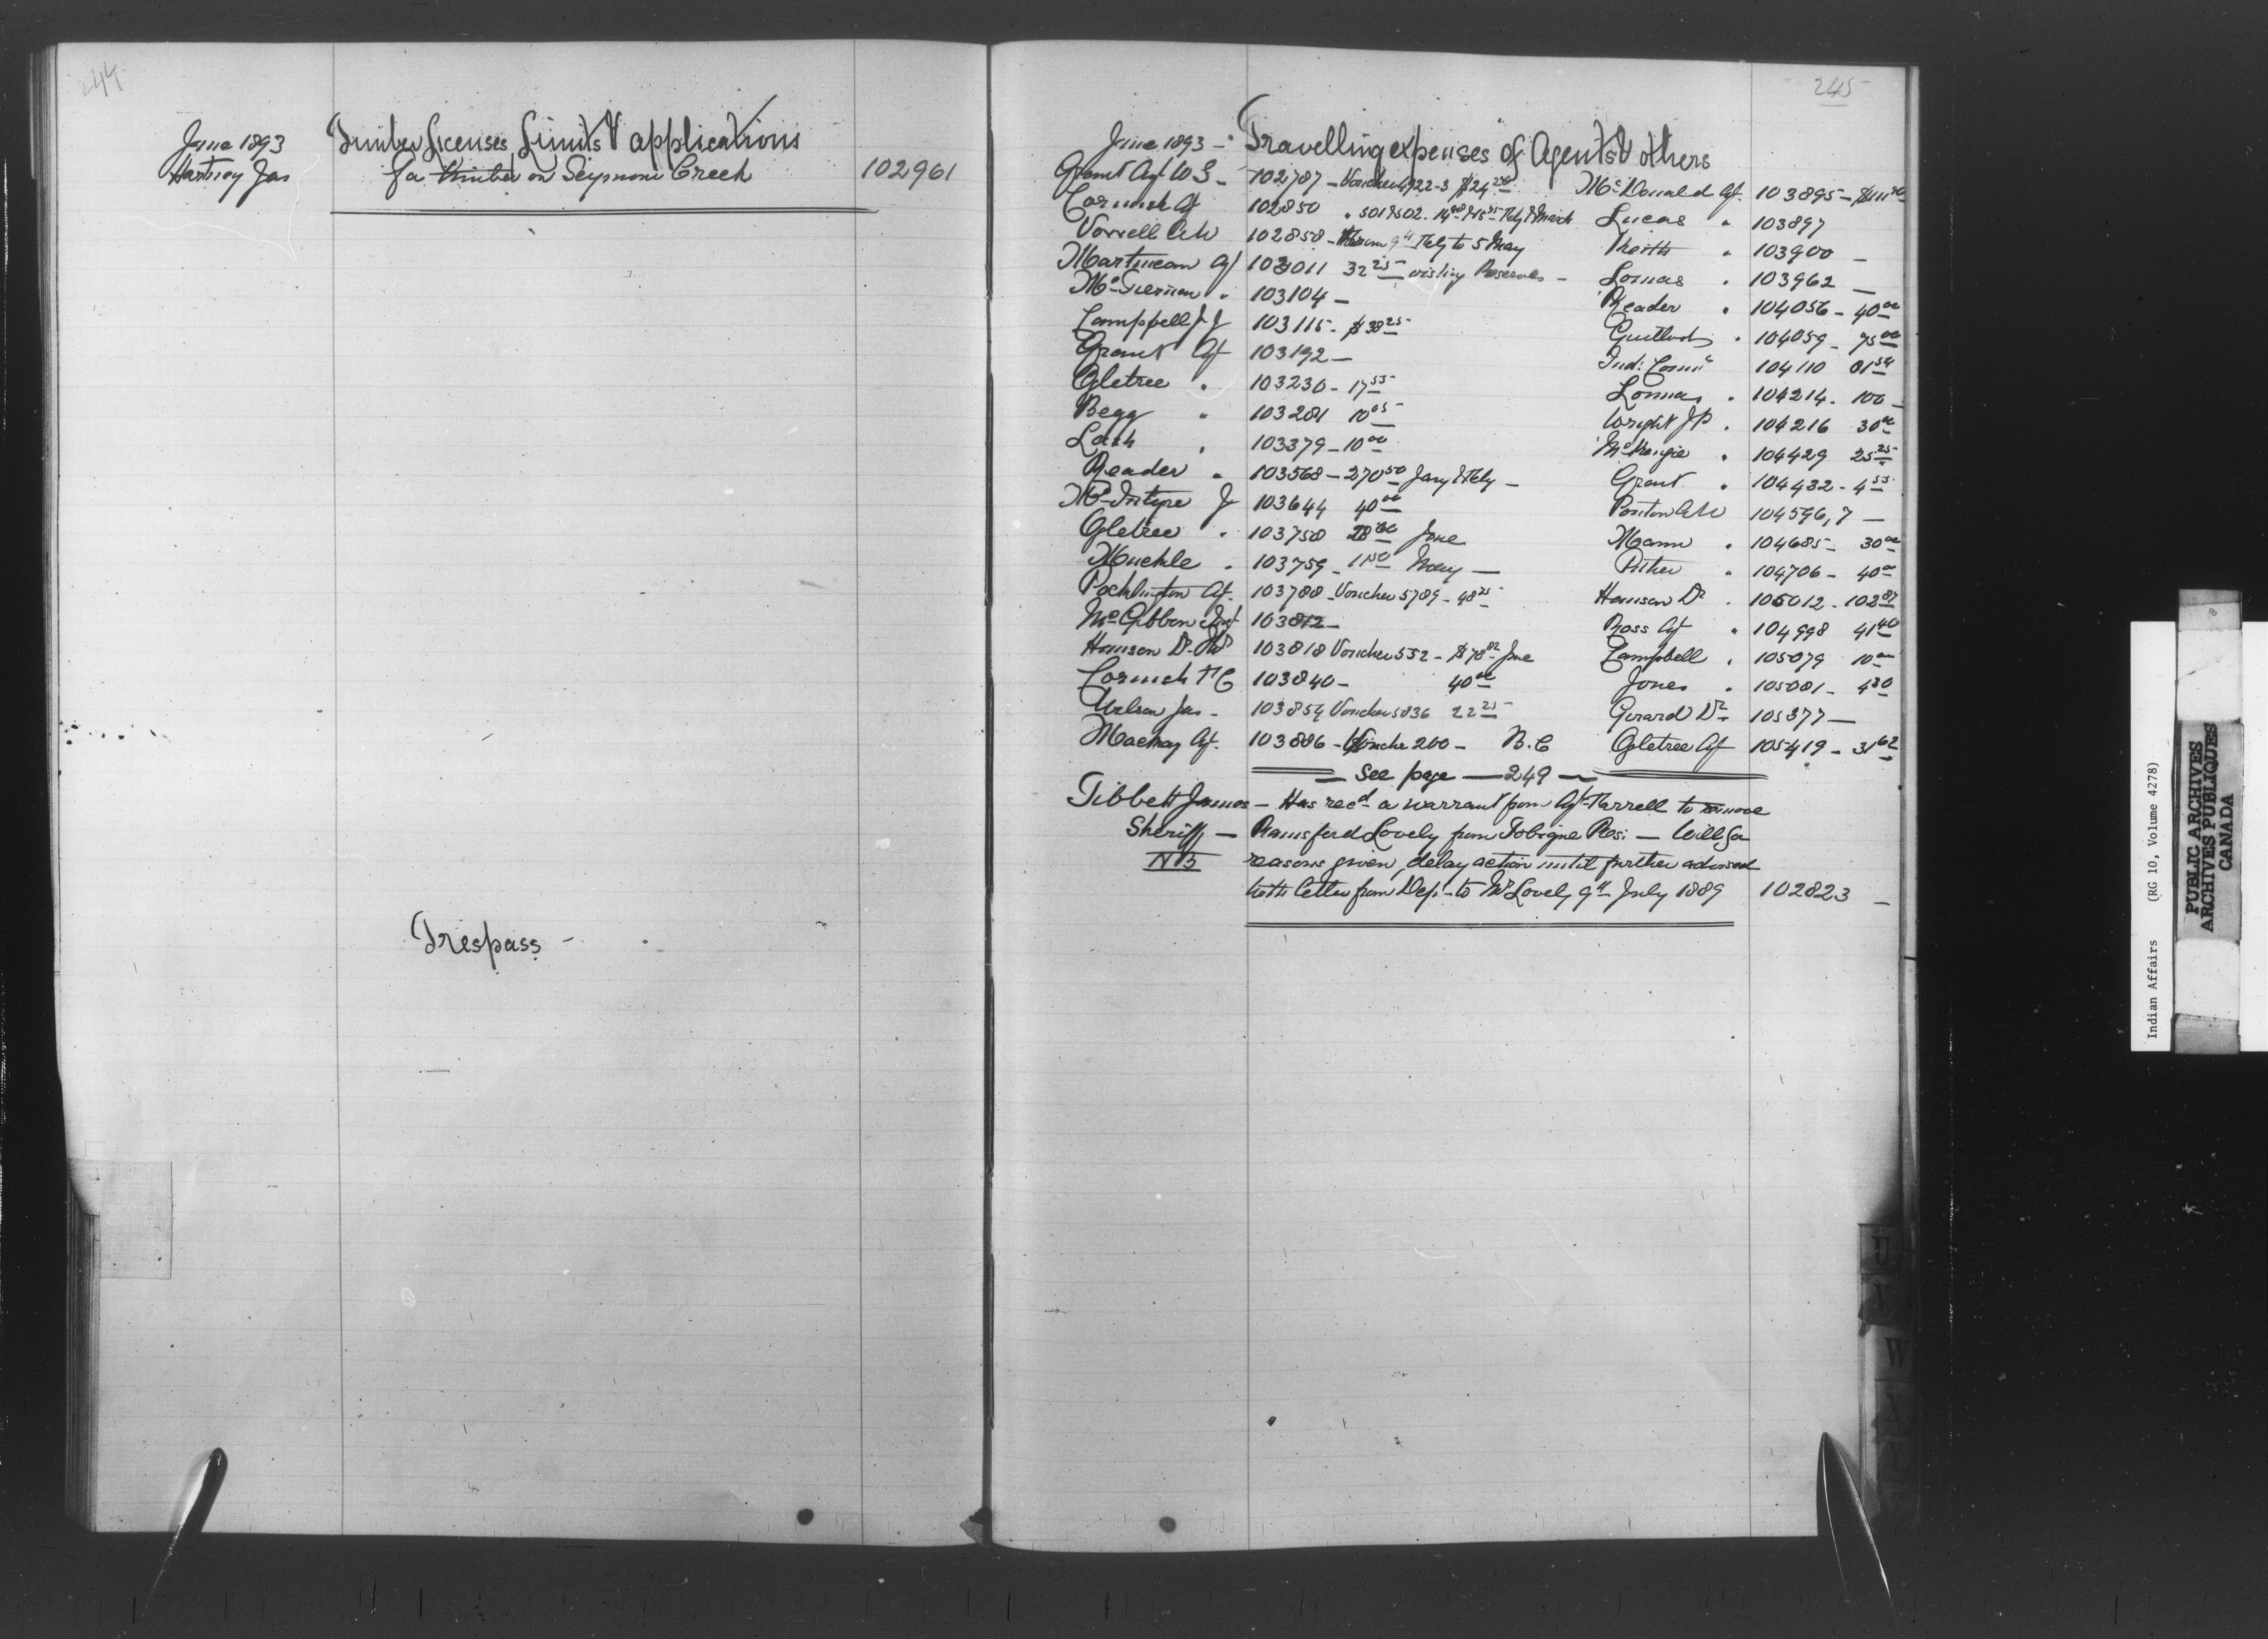 244
June 1893 Timber licenses, Limits & applications
Hartney Jas for timber on Seymour Creek 102961
Trespass -
245
June 1893 - Travelling expenses of Agents & others
Grant Agt W S - 102787 - Voucher 4922-3 $24
Cornish G 102850 " 501 & 502. Feby & March
Vowell A W 102858 - 9th Feby to 5 May
Martineau Agt 103011 32 25 visiting Reserves -
McTiernan " 103104 -
Campbell J J 103115 - $38 25
Grant Agt 103192 -
Ogletree " 103230 - 17 55
Begg " 103281 10 05
Lash " 103379 - 10 00
Reader " 103568 - 270 50 Jany & Feby -
McIntyre J 103644 40 00
Ogletree " 103758 28 00 June
Muehle " 103759 - 1 50 May -
Pocklington Agt. 103788 - Voucher 5789 - 48 25
McGibbon 103812 -
Hanson Dr 103818 Voucher 552 - $78 82 June
Cornish T C 103840 - 40 00
Nelson Jas - 103854 Voucher 5836 22 25
Mackay Agt. 103886 - Voucher 200 - B.C
McDonald Agt. 103895 -
Lucas " 103897
Keith " 103900 -
Lomas " 103962 -
Reader " 104056 - 40 00
Guillod " 104059 - 75 00
Ind: Comr 104110 81 54
Lomas " 104214 - 100 -
Wright J P " 104216 30 00
McKenzie " 104429 25 25
Grant " 104432 - 4 55
Ponton A W 104596,7 -
Mann " 104685 - 30 00
Pither " 104706 - 40 00
Hanson Dr " 105012 - 102 87
Ross Agt " 104998 41 40
Campbell " 105079 10 00
Jones " 105081 - 4 30
Girard Dr 105377 -
Ogletree Agt 105419 - 31 62
- See page - 249 -
Tibbett James - Has recd a warrant from Agt Farrell to remove
Sheriff - Ransford Lovely from Tobique Res: - Will for
NB reasons given, delay action until further advised
with letter from Dep. to Mr Lovely 9th July 1889 102823 -
U
W
X
Indian Affairs (RG 10, Volume 4278)
PUBLIC ARCHIVES
ARCHIVES PUBLIQUES
CANADA